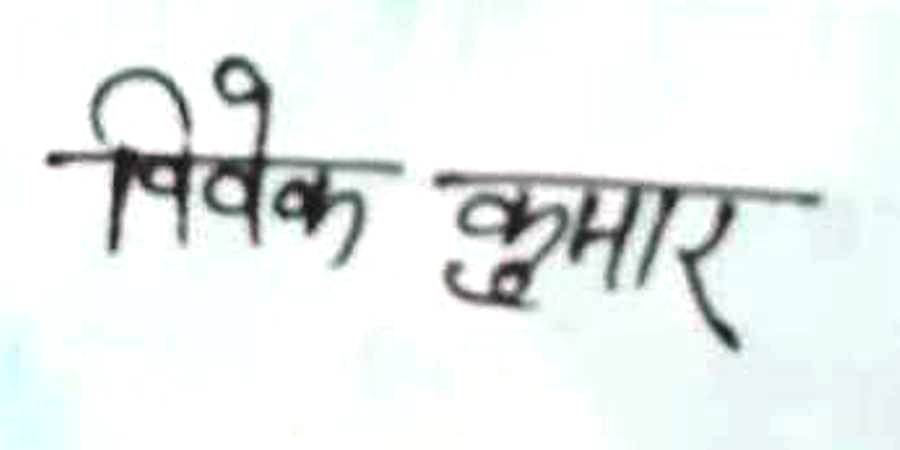 विवेक कुमार